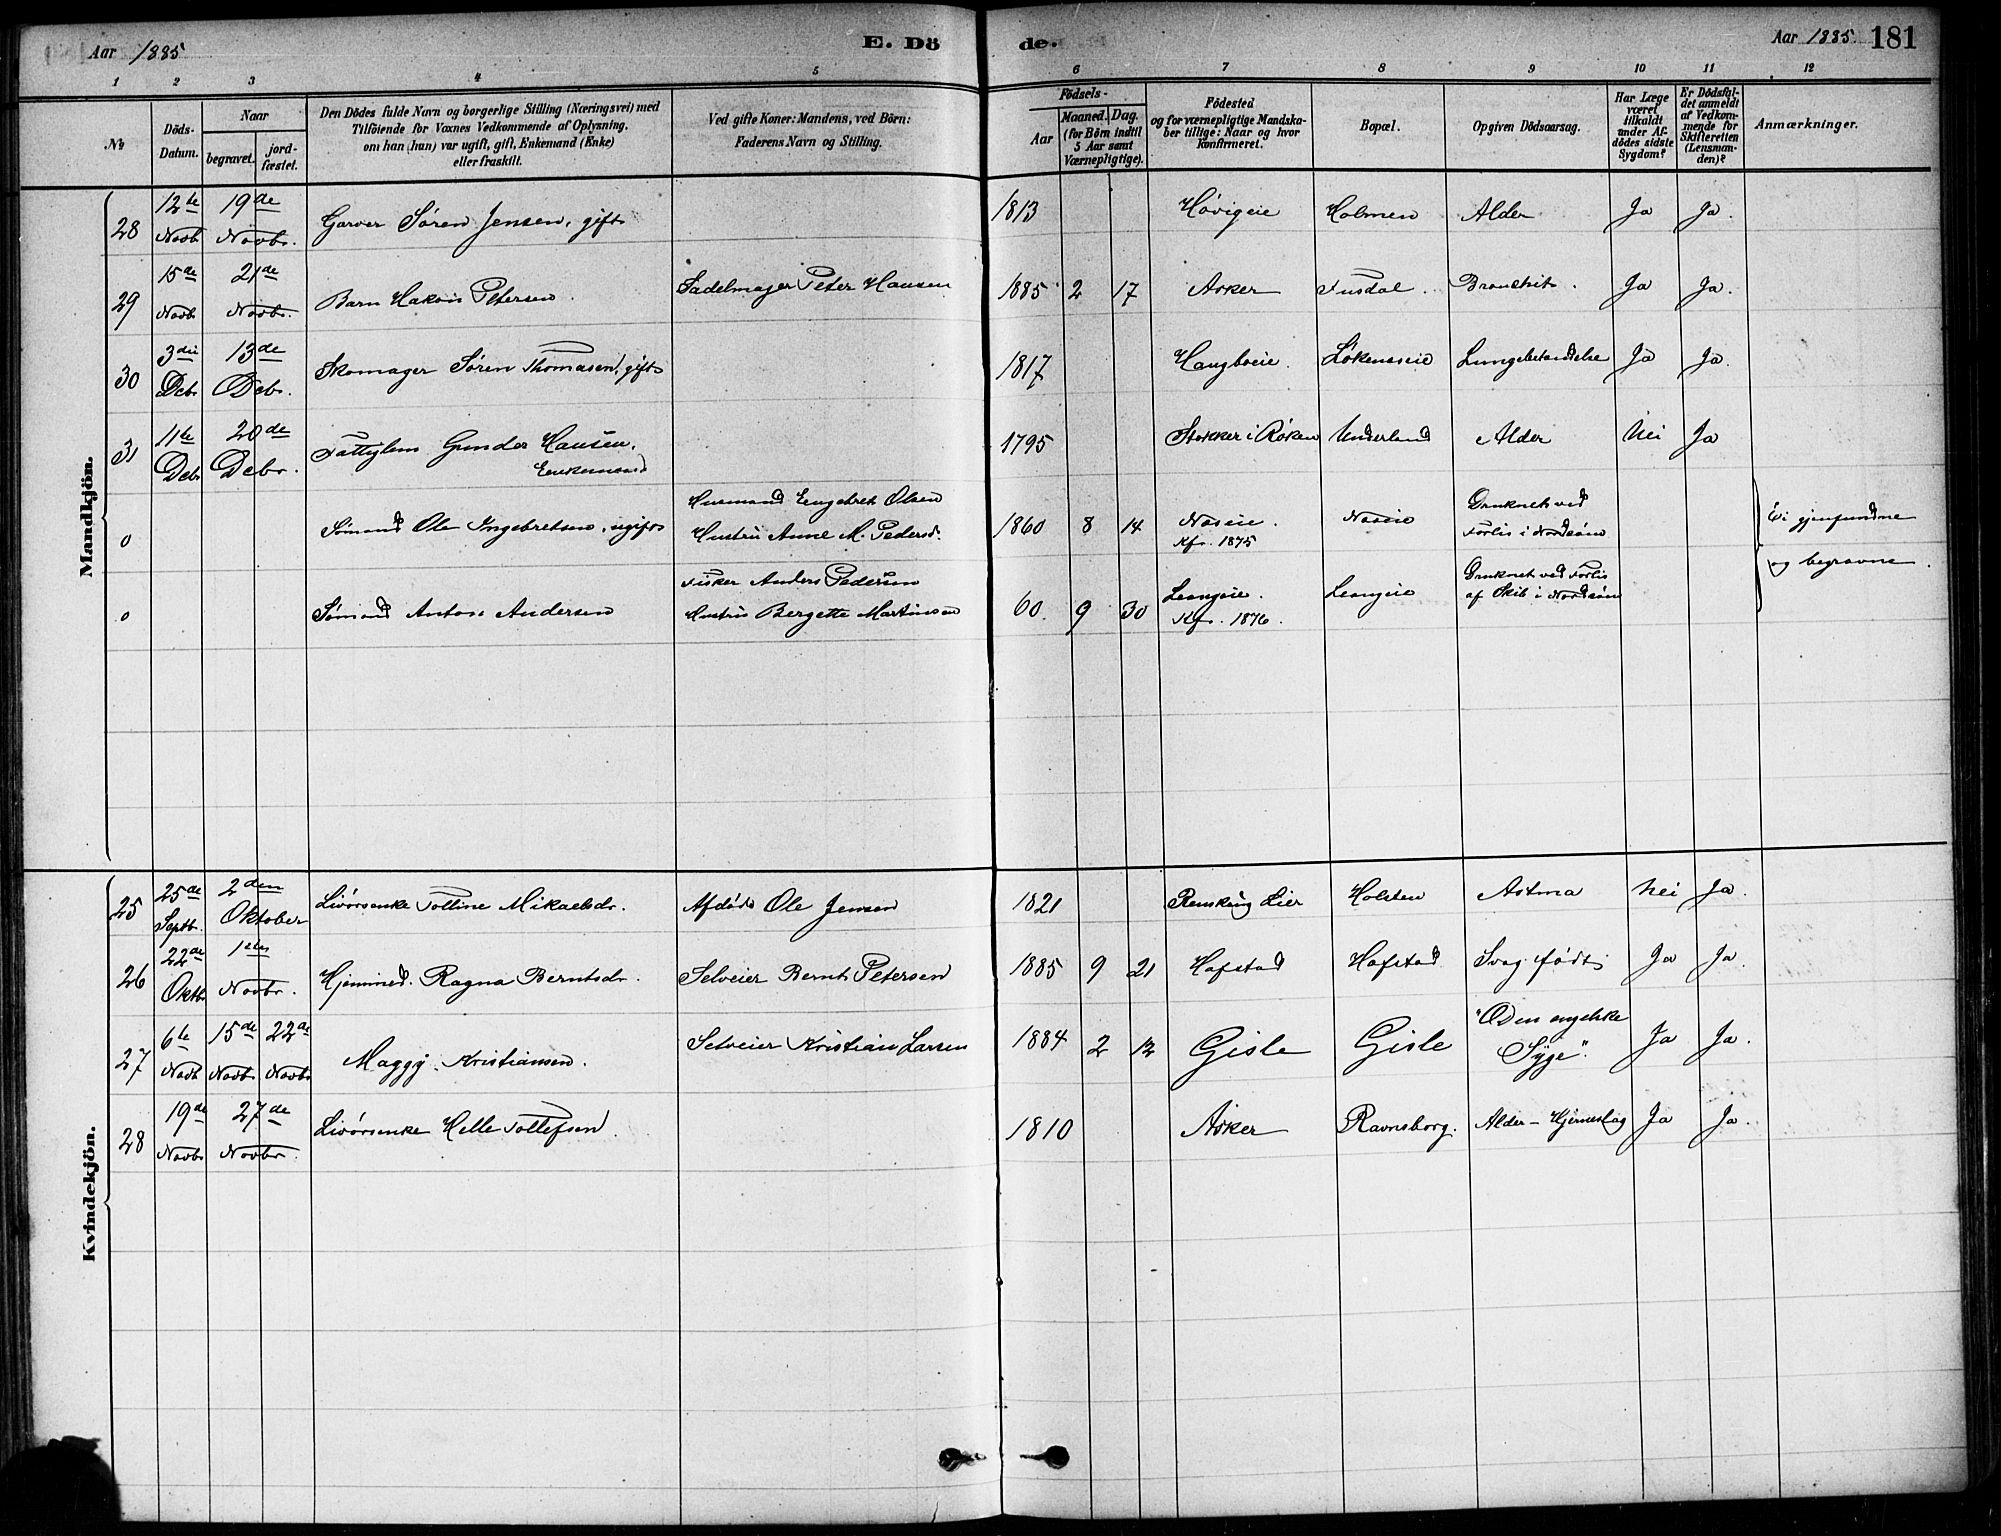 Aar 1885 E. Dö de. Aar 1885. 181
1 2 3 4 5 6 7 8 9 10 11 12
No
Döds-Datum.
Naar
begravet. jord-fæstet.
Den Dödes fulde Navn og borgerlige Stilling (Næringsvei) med
Tilföiende for Voxnes Vedkommende af Oplysning.
om han (hun) var ugift, gift, Enkemand (Enke)
eller fraskilt.
Ved gifte Koner: Mandens, ved Börn:
Faderens Navn og Stilling.
Födsels-
Aar Maaned. Dag.
(for Börn indtil
5 Aar samt
Værnepligtige).
Födested
og for værnepligtige Mandska-
ber tillige: Naar og hvor
konfirmeret.
Bopæl.
Opgiven Dödsaarsag.
Har Læge
været
tilkaldt
under Af-
dödes sidste
Sygdom?
Er Dödsfal-
det anmeldt
af Vedkom-
mende for
Skifteretten
(Lensman-
den)?
Anmærkninger.
Mandkjön.
28 12te Novb. 19de Novbr. Garver Søren Jensen, gift 1813 Høvigeie Holmen Alder Ja Ja.
29 15de Novb. 21de Novbr. Barn Hakon Petersen. Sadelmager Peter Hansen 1885 2 17 Asker Fusdal. Bronchit. Ja Ja.
30 3die Debr 13de Debr. Skomager Søren Thomasen, gift 1817 Haugboeie. Løkenseie Lungebetændelse Ja Ja.
31 11te Debr 20de Debr. Fattiglem Gunder Hansen,
Enkemand 1795 Stokker i Røken Underland Alder Nei Ja
0 Sømand Ole Ingebretsen, ugift Husmand Engebret Olsen
Hustru Anne M. Pedersd. 1860 8 14 Næseie.
Kfr. 1875 Næseie Druknet ved
Forlis i Nordsøen Ei gjenfundne
og begravne.
0 Sømand Anton Andersen Fisker Anders Pedersen
Hustru Bergette Martinsen 60. 9 30 Leangeie.
Kfr. 1876. Leangeie Druknet ved Forlis
af Skib i Nordsøen
Kvindekjön.
25 25de Septb. 2den Oktober Livørsenke Tolline Mikaelsdr. Afdøde Ole Jensen 1821 Lier Holsten Astma Nei Ja.
26 22de Oktbr 1ste Novbr. Hjemmed. Ragna Berntsdr. Selveier Bernt Petersen 1885 9 21 Hofstad Hofstad Svag født Ja Ja.
27 6te Novb 15de Novb 22de Novbr Maggy Kristiansen. Selveier Kristian Larsen 1884 2 12 Gisle Gisle "Den engelske
Syge". Ja Ja.
28 19de Novbr 27de Novbr. Livørsenke Helle Tollefsen. 1810 Asker Ravnsborg. Alder - Hjerneslag Ja Ja.